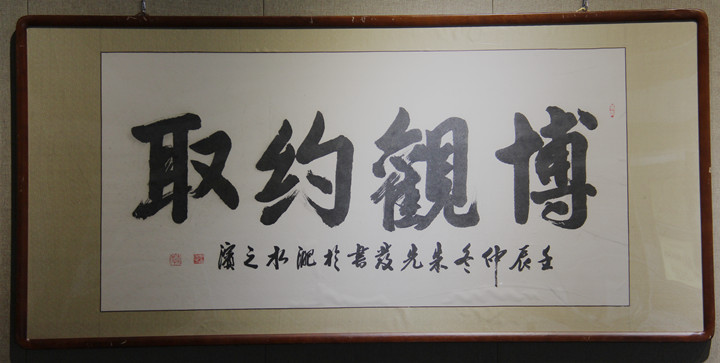 博觀约取
壬辰仲冬朱先發書於淝水之濱